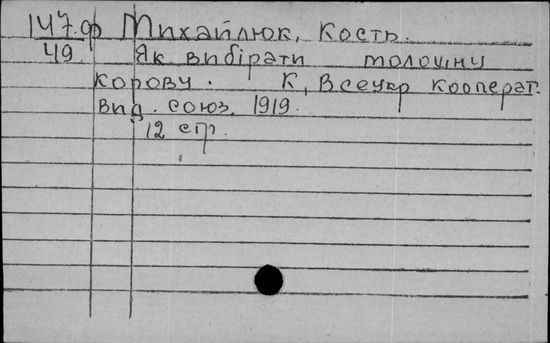 147.ф Михайлюк, Кость.
49. Як вибірати молошну
корову. К, Всеукр кооперат.
вид. союз. 1919.
12 стр.